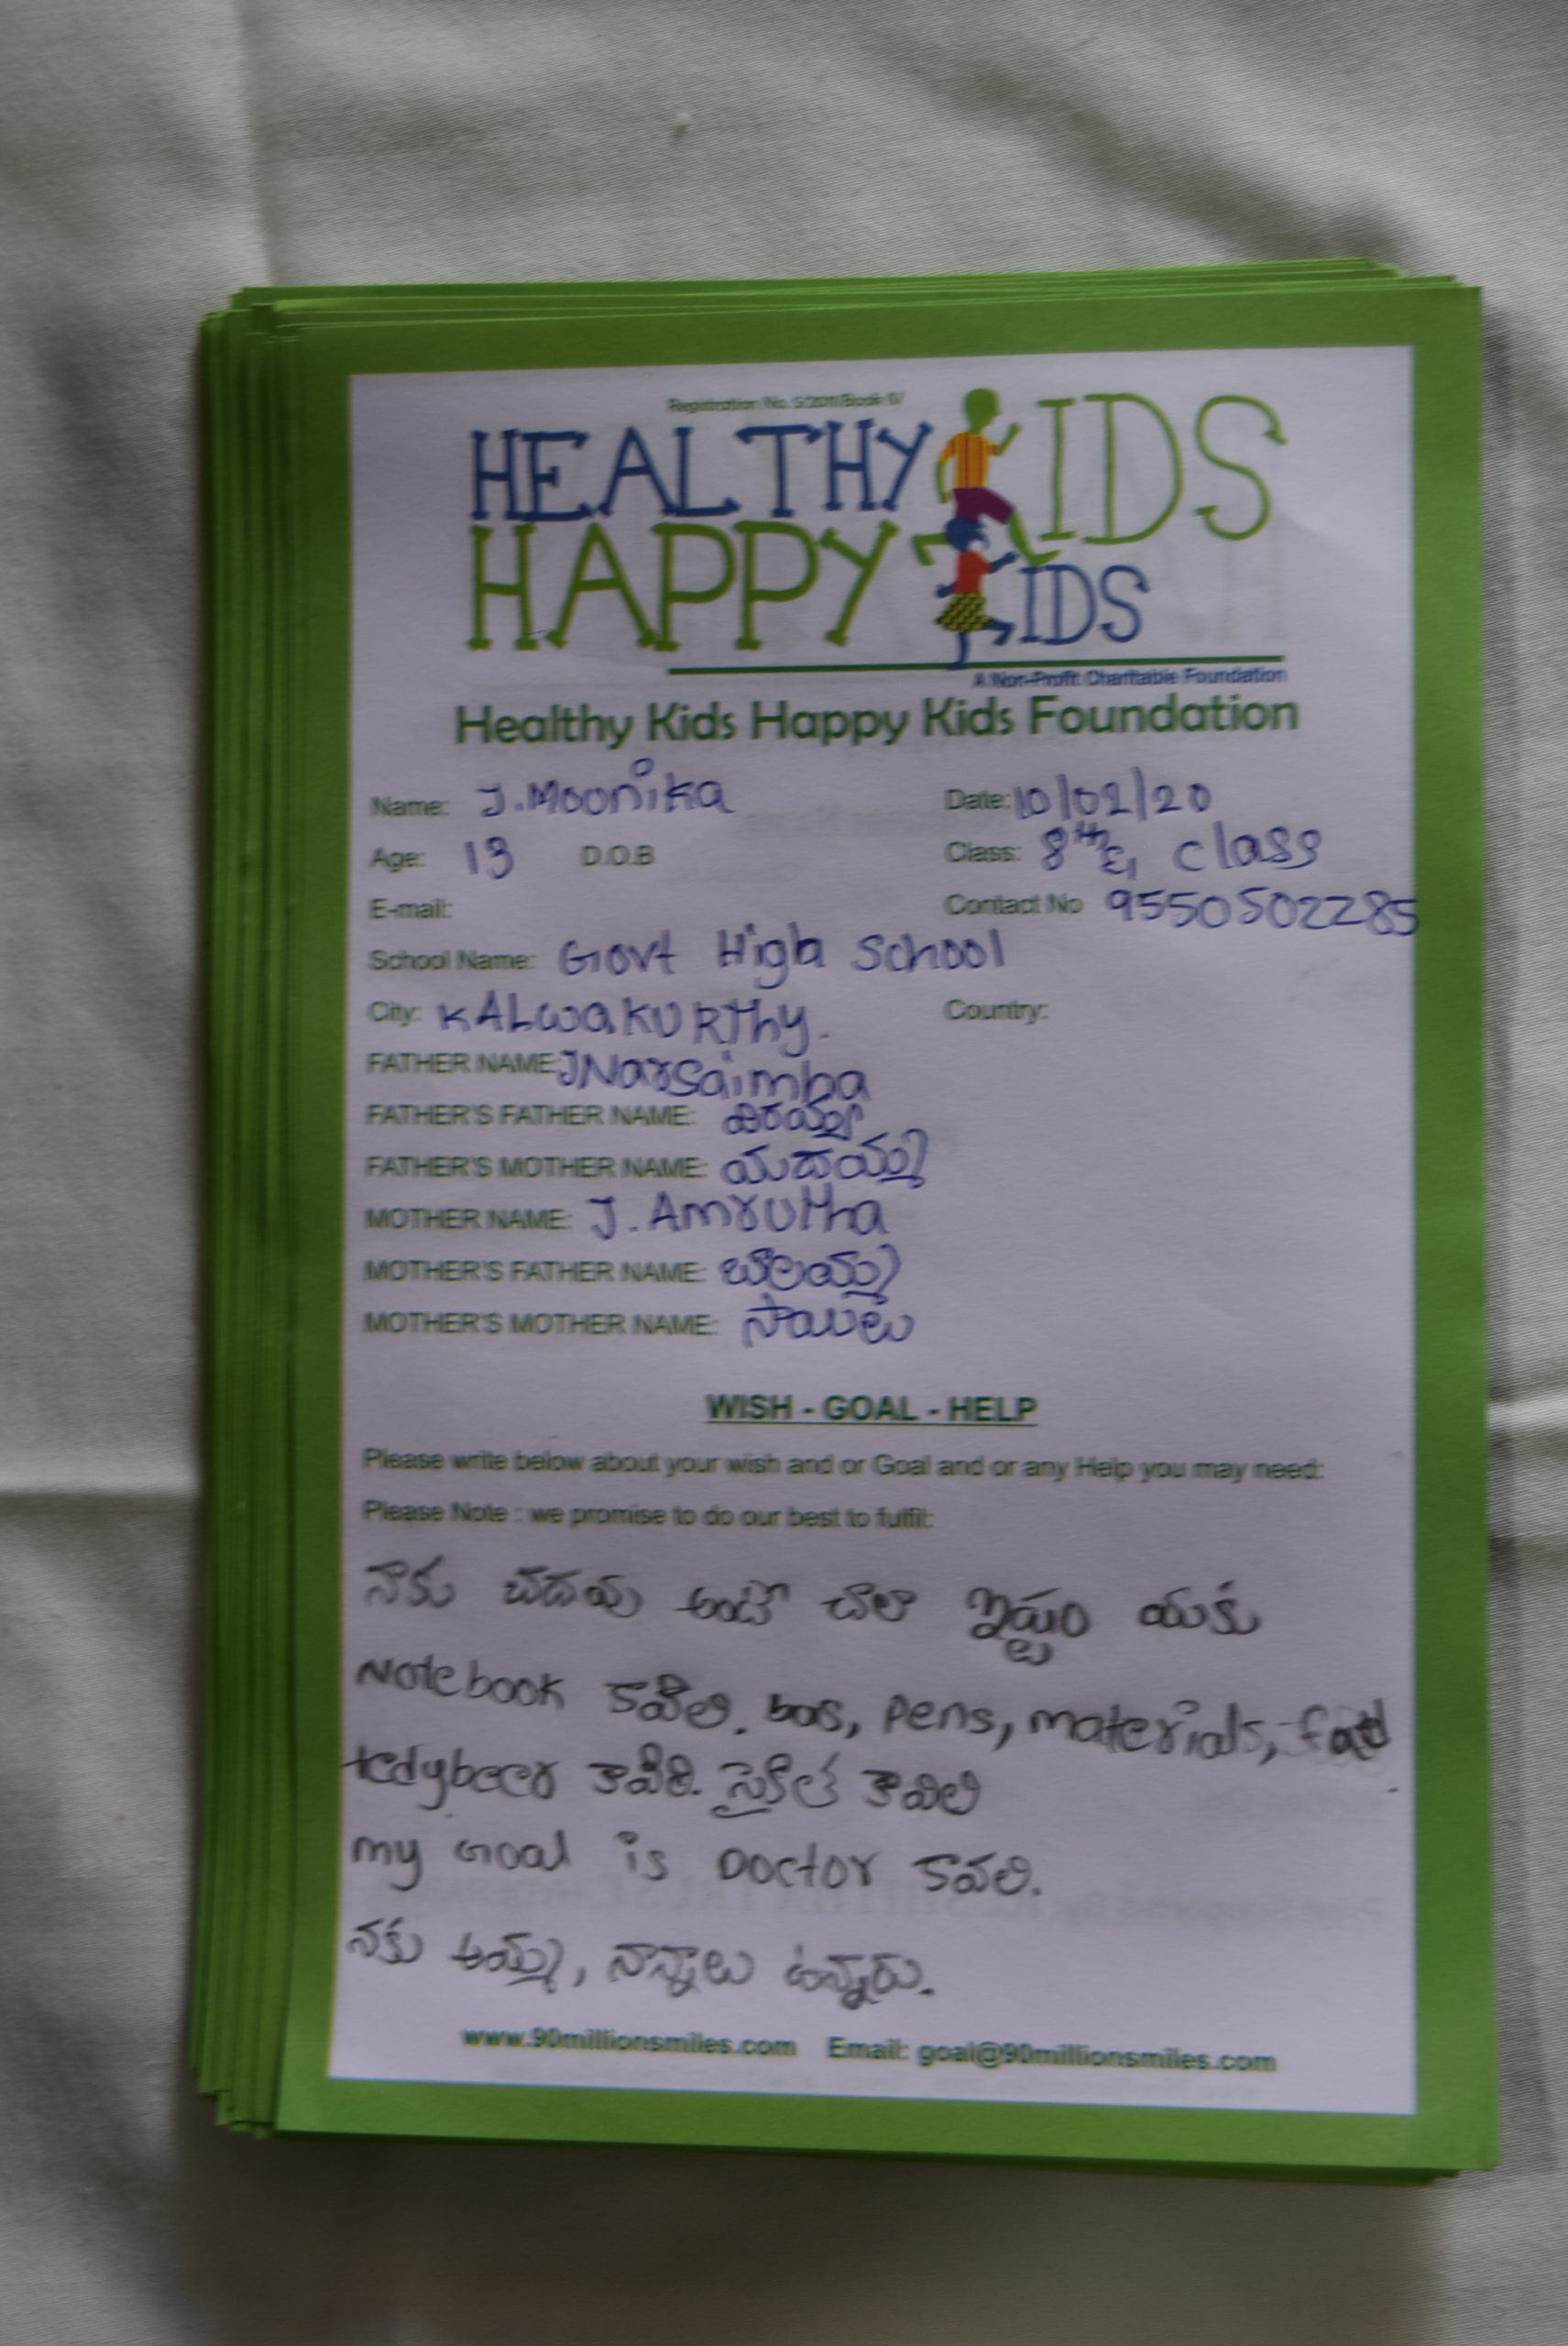 HEALTHY KIDS
HAPPY KIDS
A Non-Profit Charitable Foundation
Healthy Kids Happy Kids Foundation
Name: J.Moonika Date: 10/02/20
Age: 13 D.O.B Class: 8th E, class
E-mail: Contact No 9550502285
School Name: Govt High School
City: KALWAKURThy. Country:
FATHER NAME: J Narsaimha
FATHER'S FATHER NAME:
FATHER'S MOTHER NAME: యదయ్మ
MOTHER NAME: J. Amrutha
MOTHER'S FATHER NAME: బాలయ్య
MOTHER'S MOTHER NAME: సాయిలు
WISH - GOAL - HELP
Please write below about your wish and or Goal and or any Help you may need:
Please Note : we promise to do our best to fulfil:
నాకు చదవు అంటే చాలా ఇష్టం
Notebook కావలి. pens, materials,
tedybeer కావలి. సైకిల్ కావలి
my Goal is Doctor కావలి.
నకు అమ్మ, నాన్నలు ఉన్నారు.
www.90millionsmiles.com Email: goal@90millionsmiles.com